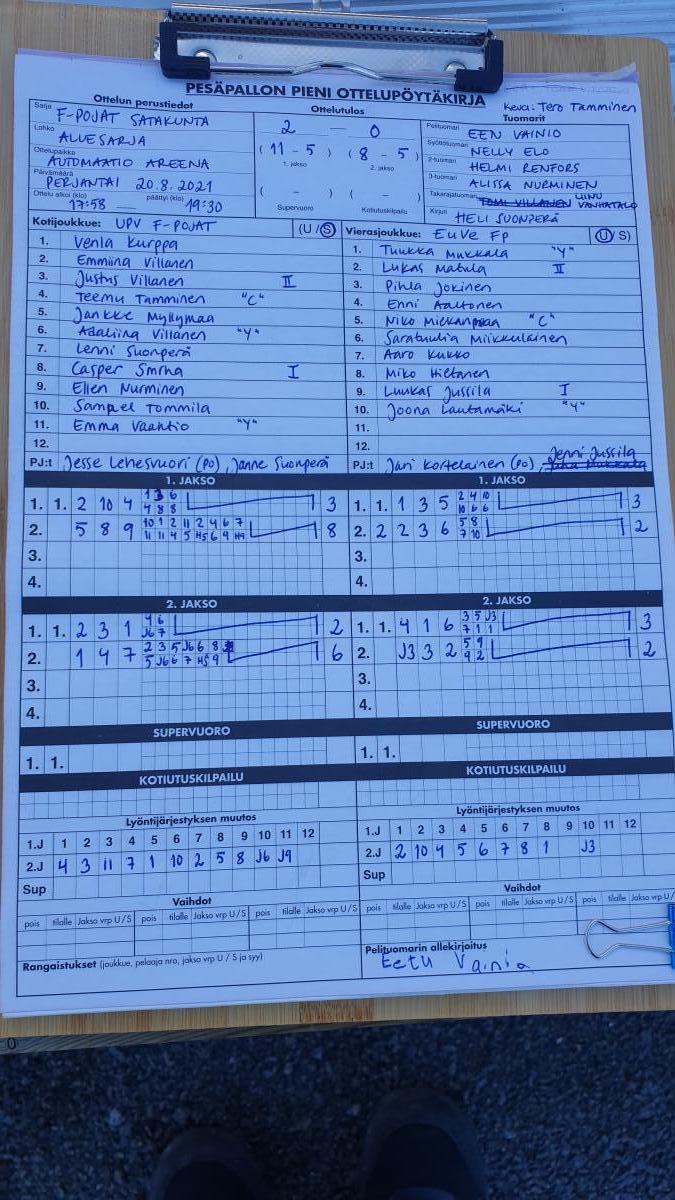 PESÄPALLON PIENI OTTELUPÖYTÄKIRJA
Keva: Tero Tamminen
Ottelun perustiedot
Ottelutulos
Tuomarit
Sarja F-POJAT SATAKUNTA
Lohko ALUESARJA
Ottelupaikka AUTOMAATIO AREENA
Päivämäärä PERJANTAI 20.8.2021
Ottelu alkoi (klo) 17:58 — päättyi (klo) 19:30
2 — 0
(11 - 5) (8 - 5)
1. jakso 2. jakso
( - ) ( - )
Supervuoro Kotiutuskilpailu
Pelituomari EEN VAINIO
Syöttötuomari NELLY ELO
2-tuomari HELMI RENFORS
3-tuomari ALISSA NURMINEN
Takarajatuomari TOMI VILLANEN LINU VANHATALO
Kirjuri HELI SUONPERÄ
Kotijoukkue: UPV F-POJAT (U / S)
1. Venla Kurppa
2. Emmiina Villanen
3. Justus Villanen II
4. Teemu Tamminen "C"
5. Jankke Myllymaa
6. Adaliina Villanen "Y"
7. Lenni Suonperä
8. Casper Smrha I
9. Ellen Nurminen
10. Sampel Tommila
11. Emma Vaahtio "Y"
12.
PJ:t Jesse Lehesvuori (PO), Janne Suonperä
Vierasjoukkue: EuVe Fp (U / S)
1. Tuukka Mukkala "Y"
2. Lukas Matula II
3. Pihla Jokinen
4. Enni Aaltonen
5. Niko "C"
6. Saratuulia Miikkulainen
7. Aaro Kukko
8. Miko Hietanen
9. Luukas Jussila I
10. Joona Lautamäki "Y"
11.
12.
PJ:t Jari Kortelainen (PO), Jenni Jussila
1. JAKSO
1. 1. 2 10 4 1 3 6 3
4 8 8
2. 5 8 9 10 1 2 11 2 4 6 7 8
11 11 4 5 H5 6 9 H9
3.
4.
1. JAKSO
1. 1. 1 3 5 2 4 10 3
10 6 6
2. 2 2 3 6 5 8 2
7 10
3.
4.
2. JAKSO
1. 1. 2 3 1 4 6 2
J6 7
2. 1 4 7 2 3 5 J6 6 8 6
5 J6 6 7 H5 9
3.
4.
2. JAKSO
1. 1. 4 1 6 3 5 J3 3
7 1 1
2. J3 3 2 5 9 2
9 2
3.
4.
SUPERVUORO
1. 1.
SUPERVUORO
1. 1.
KOTIUTUSKILPAILU
KOTIUTUSKILPAILU
Lyöntijärjestyksen muutos
1.J 1 2 3 4 5 6 7 8 9 10 11 12
2.J 4 3 11 7 1 10 2 5 8 J6 J9
Sup
Lyöntijärjestyksen muutos
1.J 1 2 3 4 5 6 7 8 9 10 11 12
2.J 2 10 4 5 6 7 8 1 J3
Sup
Vaihdot
pois tilalle Jakso vrp U / S pois tilalle Jakso vrp U / S pois tilalle Jakso vrp U / S
Vaihdot
pois tilalle Jakso vrp U / S pois tilalle Jakso vrp U / S pois tilalle
Rangaistukset (joukkue, pelaaja nro, jakso vrp U / S ja syy)
Pelituomarin allekirjoitus
Eetu Vainio